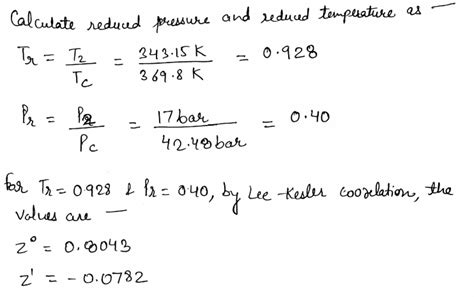 Calculate reduced pressure and reduced temperature as —
Tr = T2/Tc = 343.15 K/369.8 K = 0.928
Pr = P2/Pc = 17 bar/42.48 bar = 0.40
For Tr = 0.928 & Pr = 0.40, by Lee-Kesler coorelation, the
values are —
Z⁰ = 0.8043
Z' = -0.0782